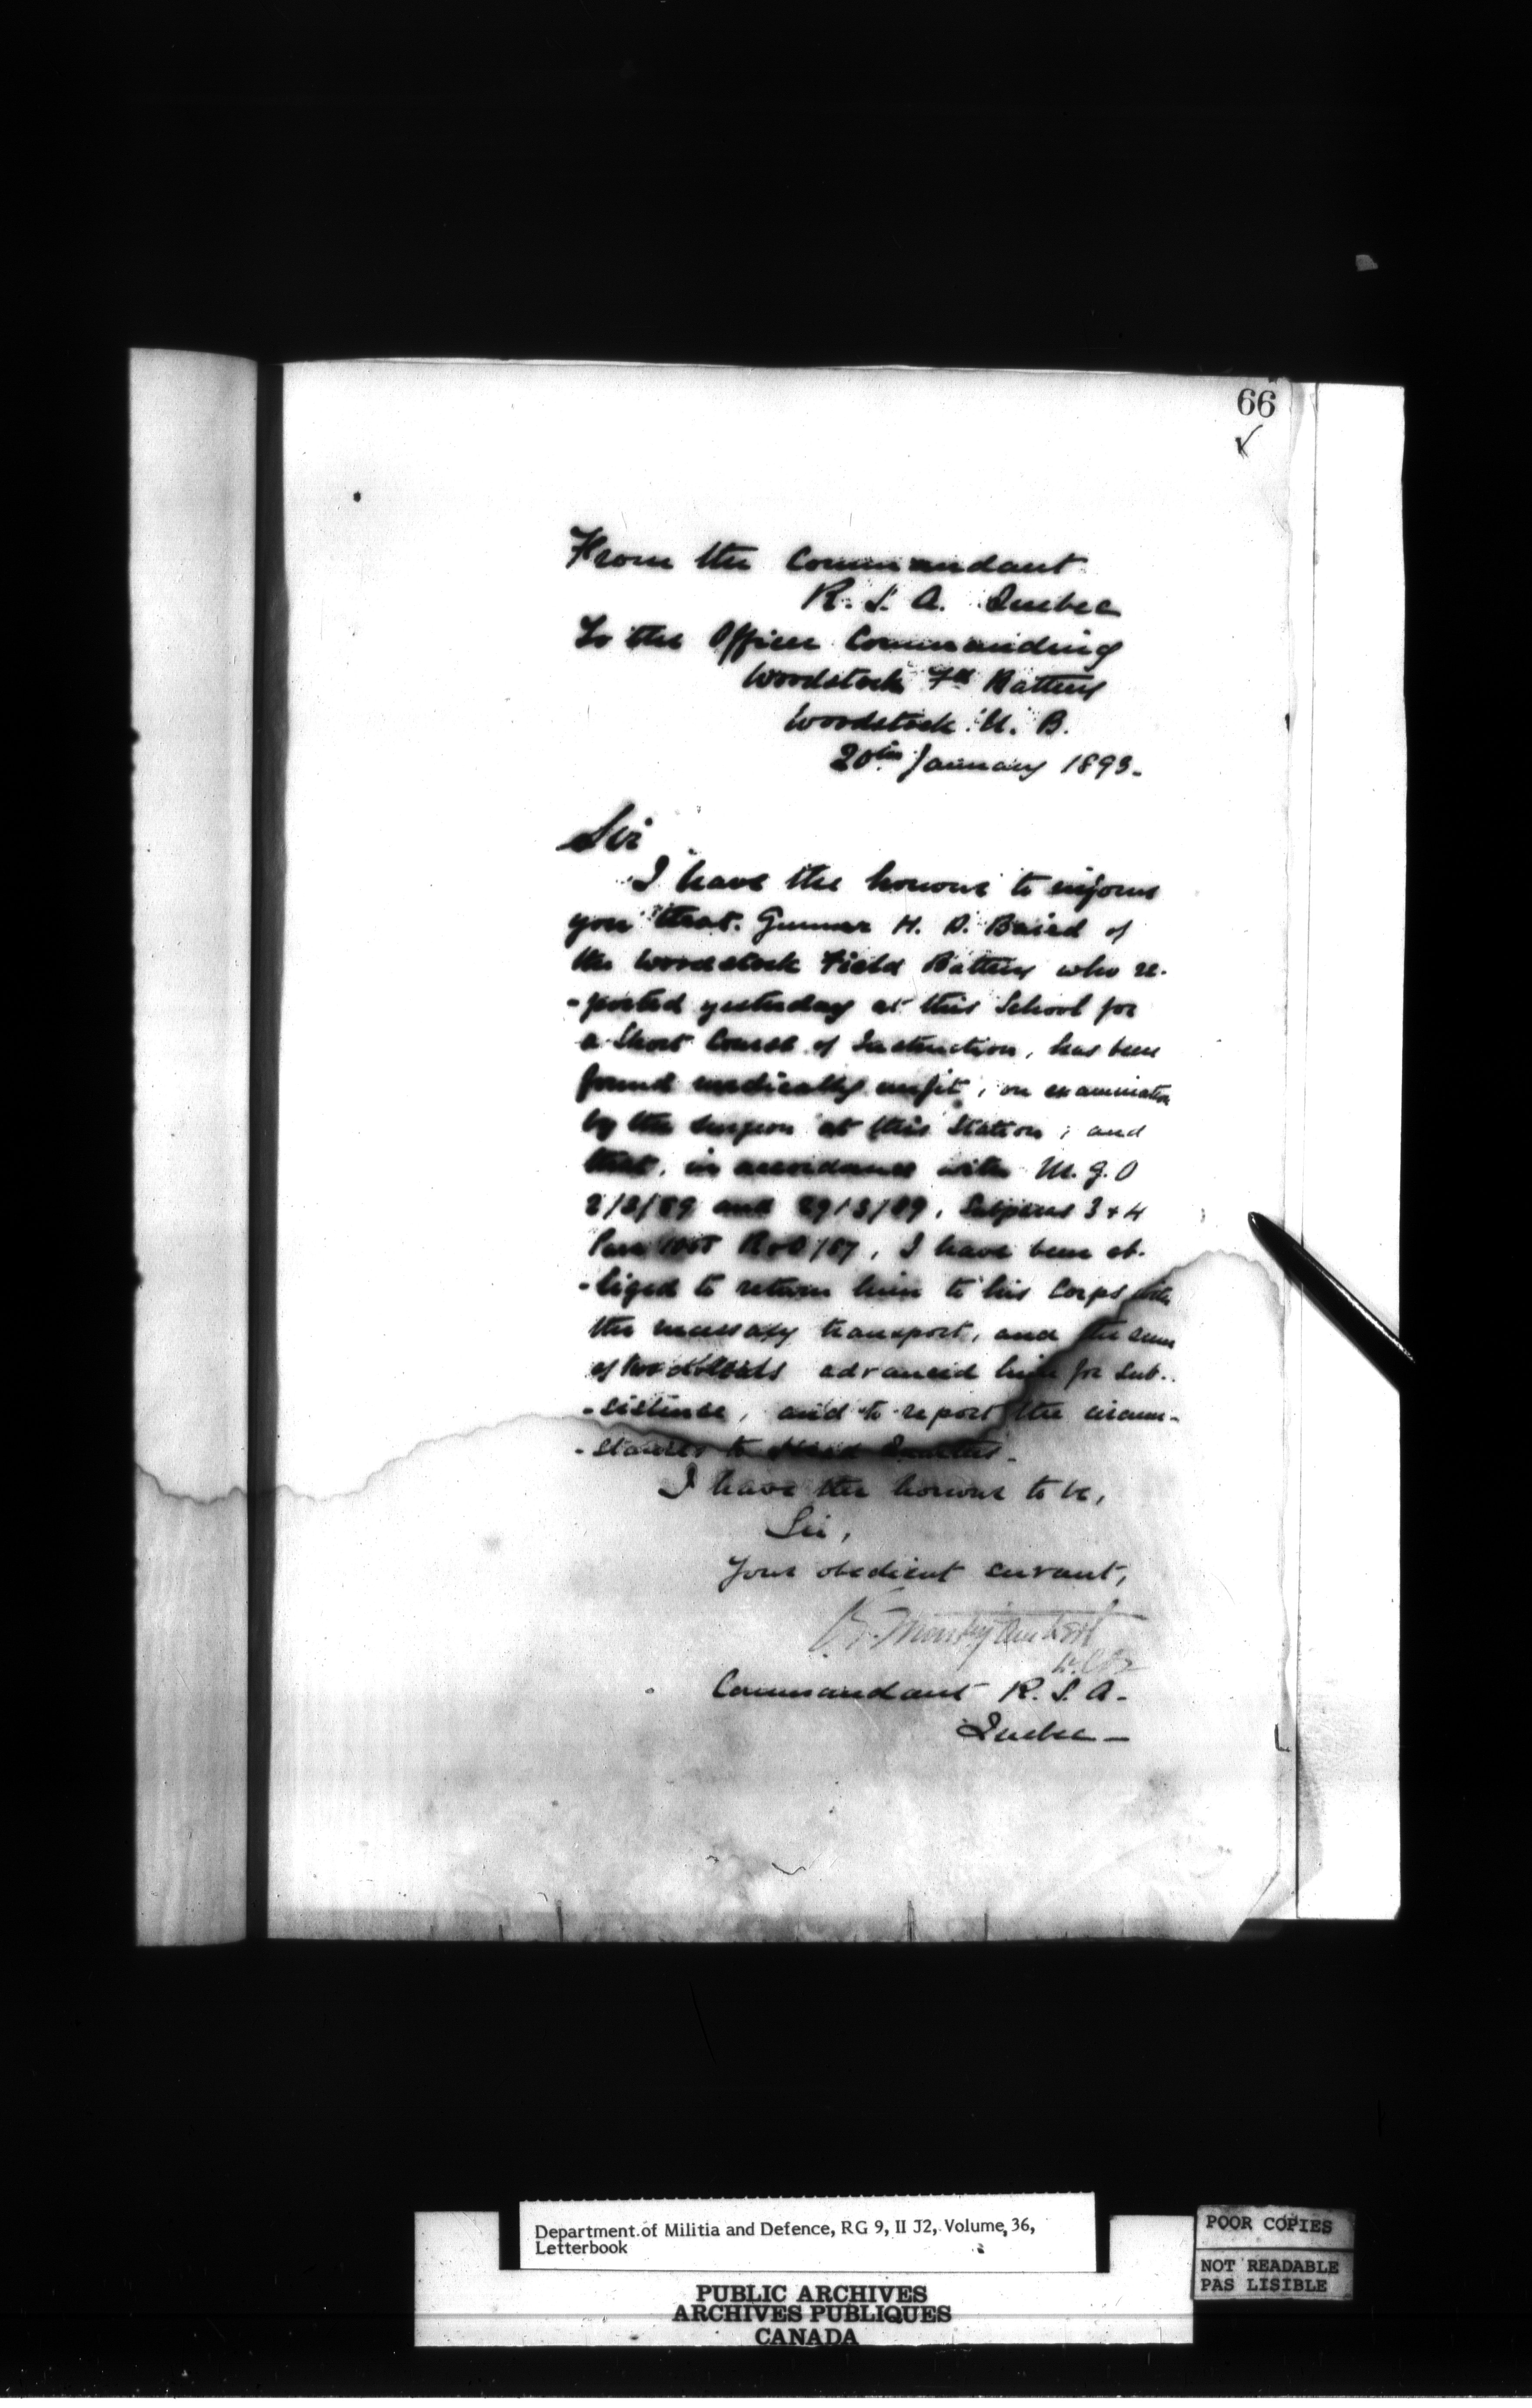 66
From the Commandant
R. S. A. Quebec
To the Officer Commanding
Woodstock Fd Battery
Woodstock. N. B.
20th January 1893.
Sir
I have the honour to inform
you that. Gunner H. D. Baird of
the Woodstock Field Battery who re-
-ported yesterday at this School for
a Short Course of Instruction, has been
found medically unfit, on examination
by the Surgeon at this Station, and
that, in accordance with M. G. O
2/3/89 and 29/3/89, 3 + 4
Para R & O/87, I have been ob-
-liged to return him to his Corps with
the necessary transport, and the sum
of two dollars advanced him for sub-
-sistence, and to report the circum-
-stances to Head Quarters.
I have the honour to be,
Sir,
Your obedient servant,
Commandant R. S. A.
Quebec
Department of Militia and Defence, RG 9, II J2, Volume, 36,
Letterbook
POOR COPIES
NOT READABLE
PAS LISIBLE
PUBLIC ARCHIVES
ARCHIVES PUBLIQUES
CANADA